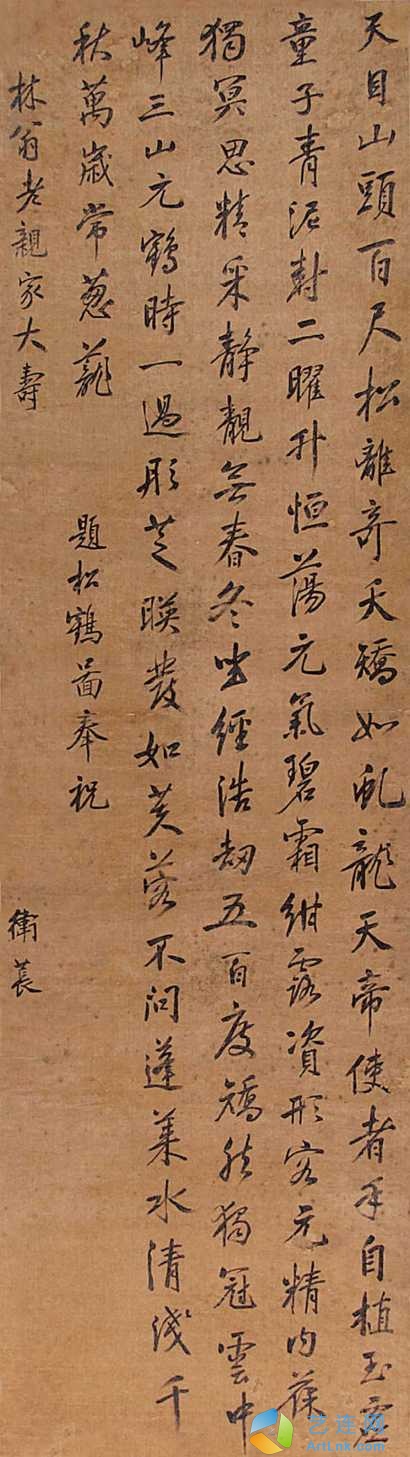 天目山頭百尺松離奇夭矯如虬龍天帝使者手自植玉虛
童子青泥封二曜升恒蕩元氣碧霜紺露資形容元精内葆
獨冥思精采静觀無春冬坐經浩劫五百度矯然獨冠雲中
峰三山元鶴時一過彤芝暎發如芙蓉不问蓬莱水清淺千
秋萬歲常葱蘢 題松鶴啚奉祝
林翁老親家大壽 衛萇
艺连网
ArtLnk.com